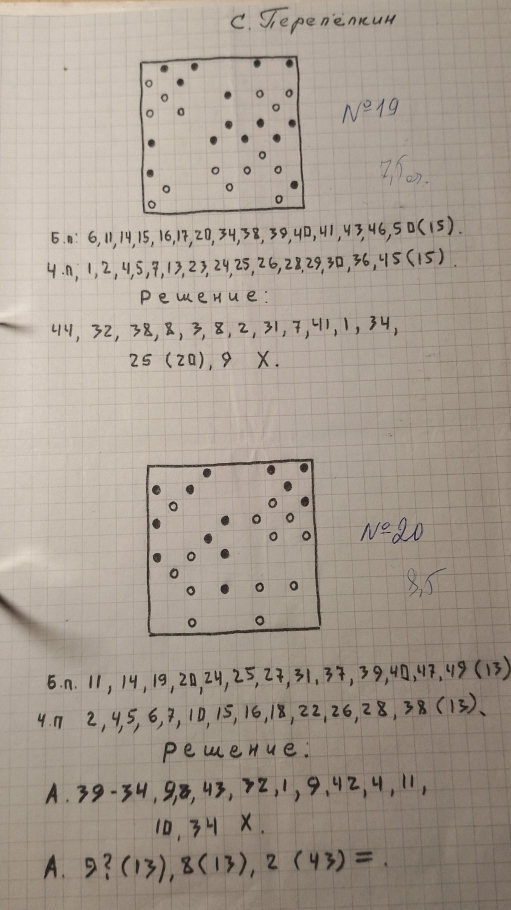 С. Перепёлкин
№19
7,5 оч.
Б.п: 6, 11, 14, 15, 16, 17, 20, 34, 38, 39, 40, 41, 43, 46, 50 (15).
Ч.п, 1, 2, 4, 5, 7, 13, 23, 24, 25, 26, 28, 29, 30, 36, 45 (15).
Решение:
44, 32, 38, 8, 3, 8, 2, 31, 7, 41, 1, 34,
25 (20), 9 X.
№20
8,5
Б.п. 11, 14, 19, 20, 24, 25, 27, 31, 37, 39, 40, 47, 49 (13)
Ч.п 2, 4, 5, 6, 7, 10, 15, 16, 18, 22, 26, 28, 38 (13).
Решение:
А. 39-34, 9, 8, 43, 32, 1, 9, 42, 4, 11,
10, 34 X.
А. 9? (13), 8 (13), 2 (43) = .